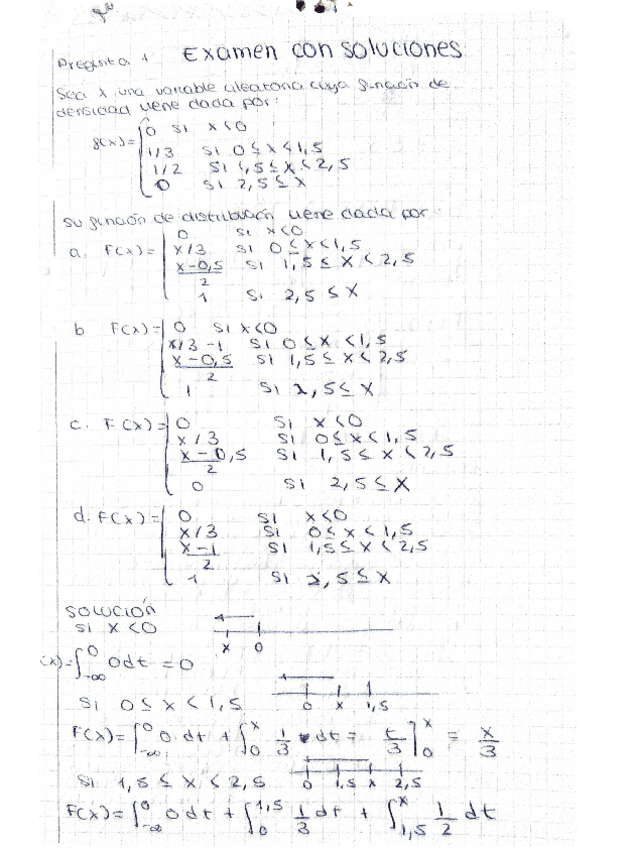 Pregunta 1 Examen con soluciones
Sea x una variable aleatoria cuya función de
densidad viene dada por:
f(x)= { 0 si x<0
1/3 si 0≤x<1,5
1/2 si 1,5≤x<2,5
0 si 2,5≤x
su función de distribución viene dada por
a. F(x)= { 0 si x<0
x/3 si 0≤x<1,5
(x-0,5)/2 si 1,5≤x<2,5
1 si 2,5≤x
b F(x)= { 0 si x<0
x/3-1 si 0≤x<1,5
(x-0,5)/2 si 1,5≤x<2,5
1 si 2,5≤x
c. F(x)= { 0 si x<0
x/3 si 0≤x<1,5
(x-0,5)/2 si 1,5≤x<2,5
0 si 2,5≤x
d. F(x)= { 0 si x<0
x/3 si 0≤x<1,5
(x-1)/2 si 1,5≤x<2,5
1 si 2,5≤x
SOLUCIÓN
si x<0
x 0
(x)=∫_{-∞}^{0} 0dt = 0
si 0≤x<1,5
0 x 1,5
F(x)=∫_{-∞}^{0} 0 dt + ∫_{0}^{x} 1/3 dt = t/3]_{0}^{x} = x/3
si 1,5≤x<2,5
0 1,5 x 2,5
F(x)=∫_{-∞}^{0} 0dt + ∫_{0}^{1,5} 1/3 dt + ∫_{1,5}^{x} 1/2 dt